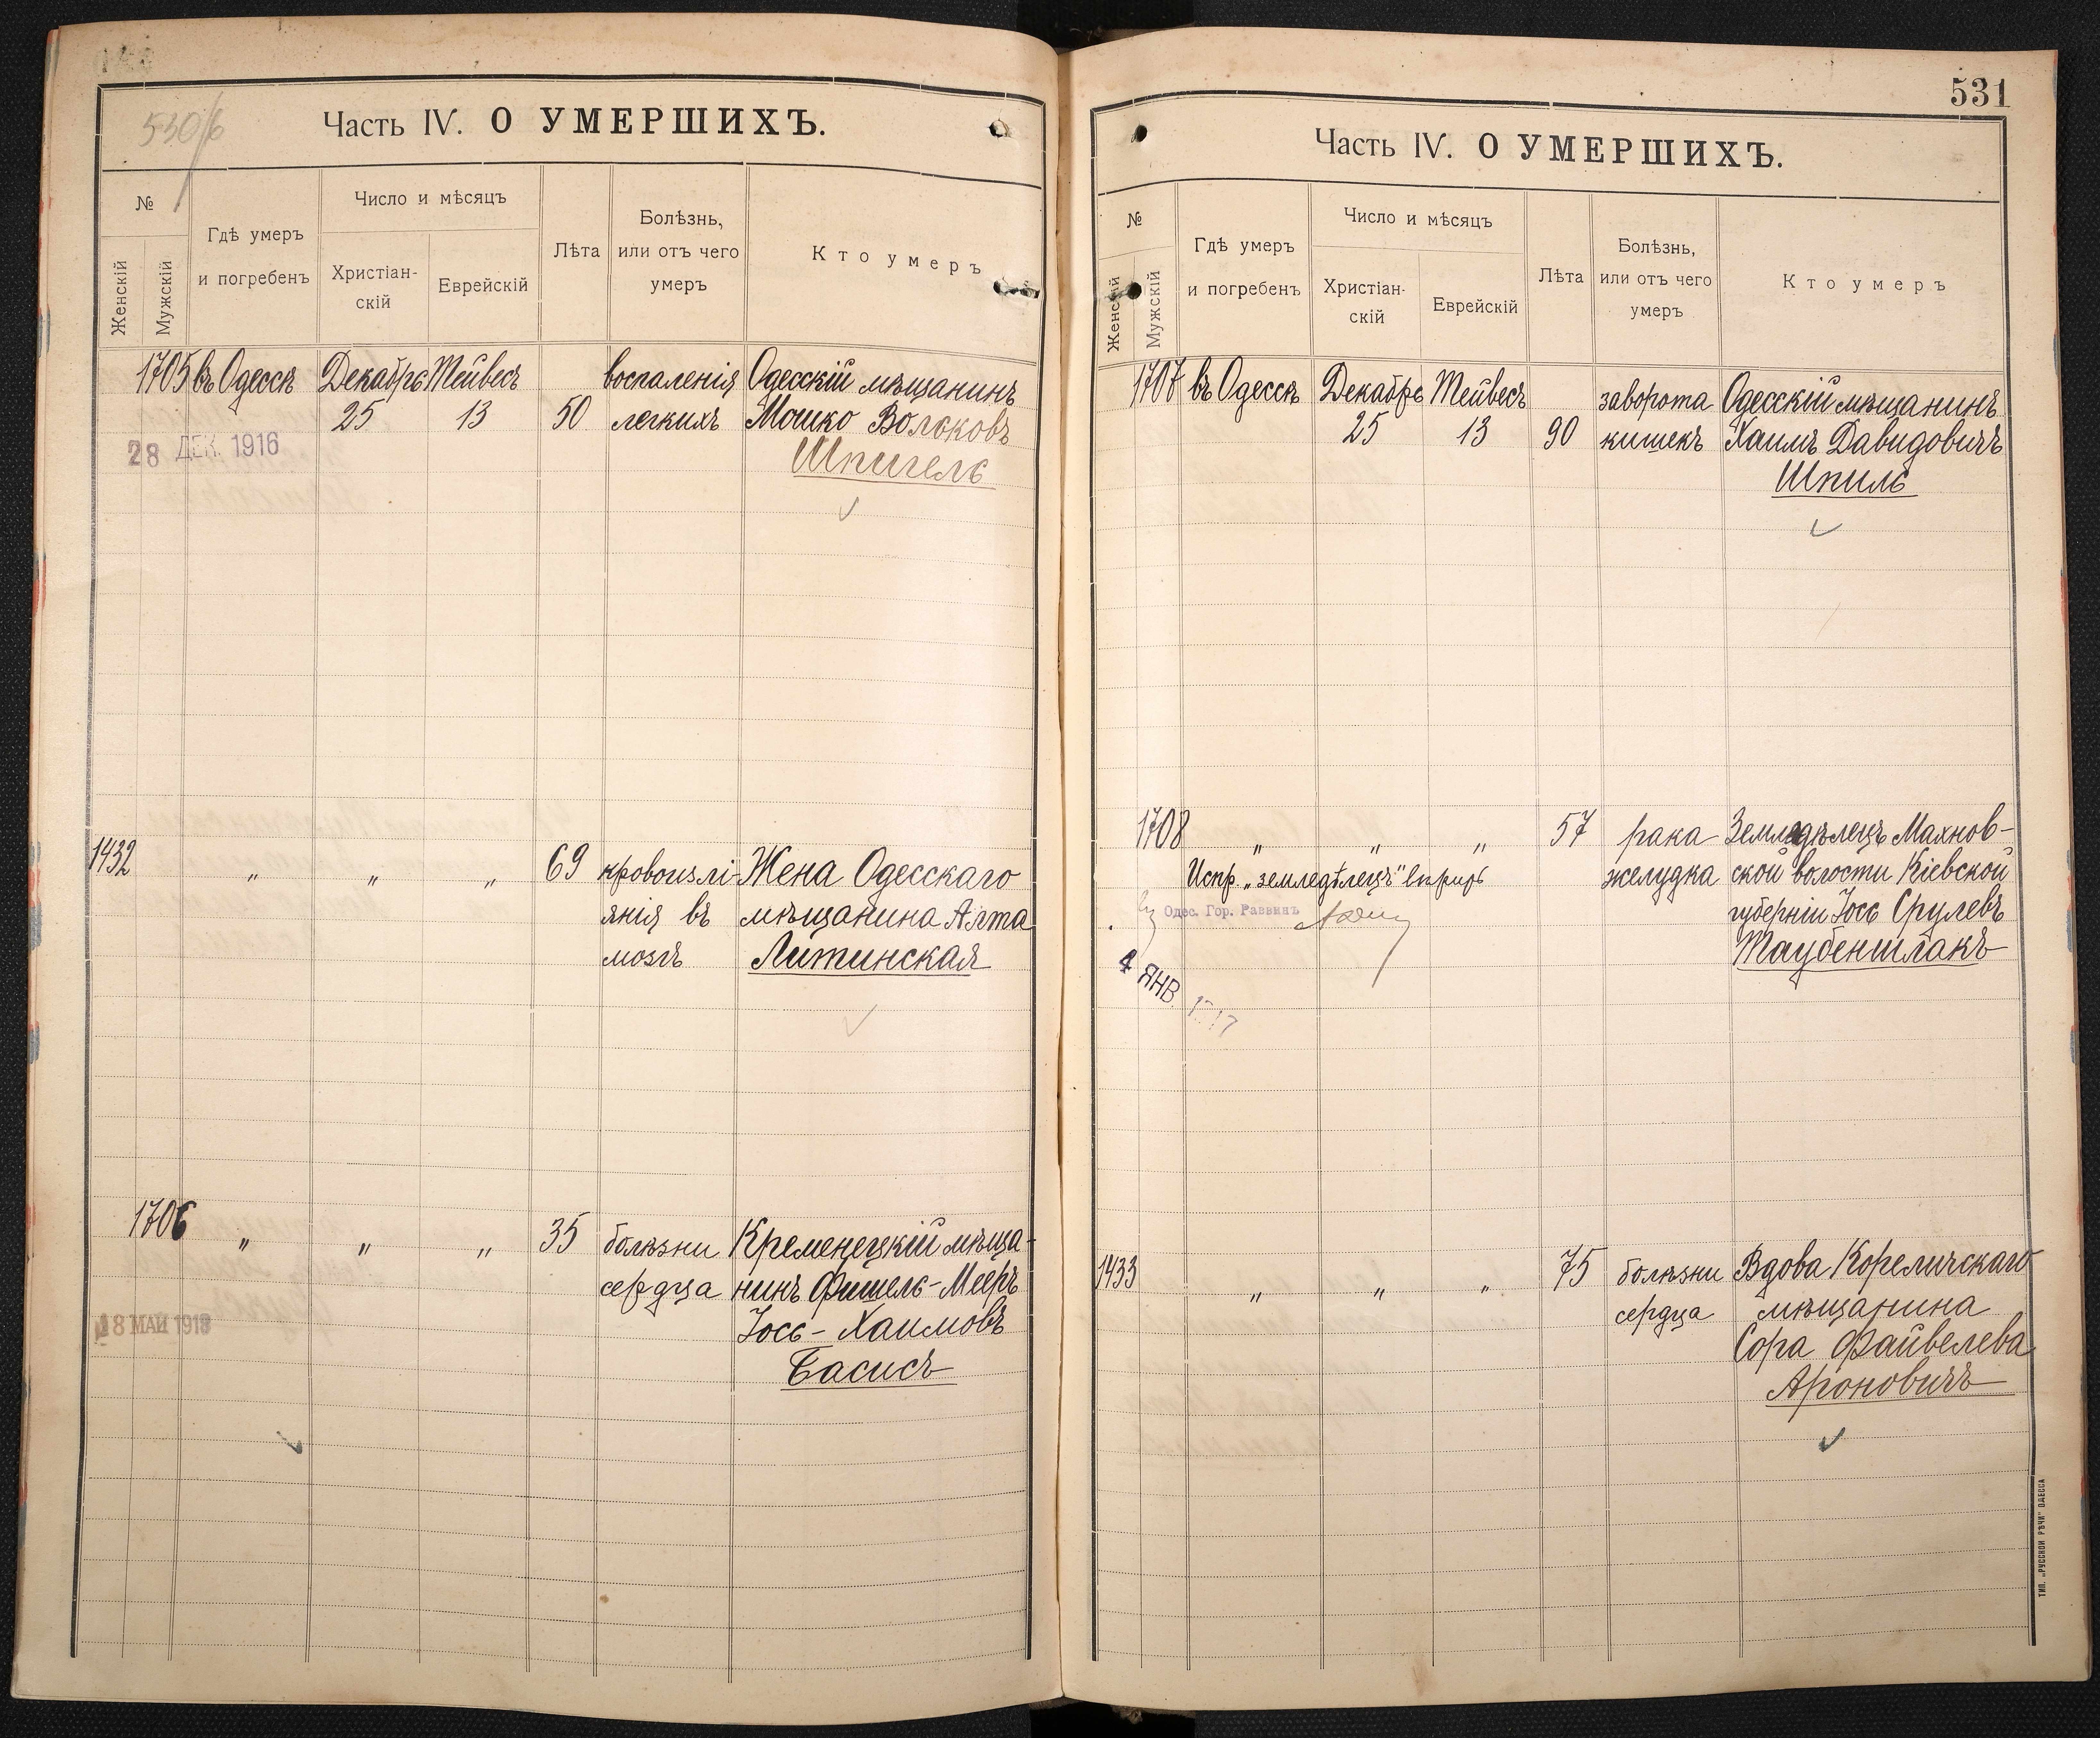 530/б
Часть IV. О УМЕРШИХЪ.
№
Женскій
Мужскій
Гдѣ умеръ
и погребенъ
Число и мѣсяцъ
Христіан-
скій
Еврейскій
Лѣта
Болѣзнь,
или отъ чего
умеръ
Кто умеръ
1705 въ Одессѣ Декабрь Тейвесъ воспаленія Одесскій мѣщанинъ
25 13 50 легкихъ Мошко Вольковъ
28 ДЕК. 1916
Шпигель
1432 " " " 69 кровоизлі- Жена Одесскаго
янія въ мѣщанина
мозгъ Литинская
1706 " " " 35 болѣзни Кременецкій мѣща-
сердца нинъ Фишель-Мееръ
Іось-Хаимовъ
18 МАЙ 1918
Басисъ
531
Часть IV. О УМЕРШИХЪ.
№
Женскій
Мужскій
Гдѣ умеръ
и погребенъ
Число и мѣсяцъ
Христіан-
скій
Еврейскій
Лѣта
Болѣзнь,
или отъ чего
умеръ
Кто умеръ
1707 въ Одессѣ Декабрь Тейвесъ заворота Одесскій мѣщанинъ
25 13 90 кишекъ Хаимъ Давидовичъ
Шпиль
1708 " " " 57 рака Земледѣлецъ Махнов-
Испр. „земледѣлецъ" желудка ской волости Кіевской
Одес. Гор. Раввинъ губерніи Іось Срулевъ
Таубеншлакъ
4 ЯНВ. 1917
1433 " " " 75 болѣзни Вдова Кореличскаго
сердца мѣщанина
Сора Файвелева
Ароновичъ
ТИП. „РУССКОЙ РѢЧИ" ОДЕССА